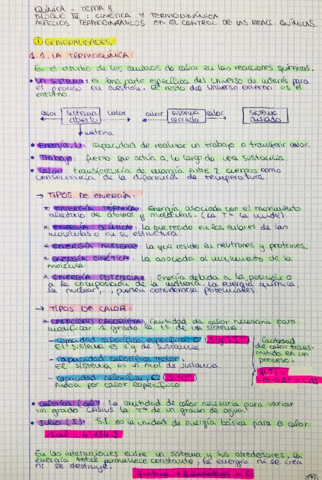 QUÍMICA - TEMA 8
BLOQUE III: CINÉTICA Y TERMODINÁMICA
ASPECTOS TERMODINÁMICOS EN EL CONTROL DE LAS REACC. QUÍMICAS.
① GENERALIDADES
1.1. LA TERMOQUÍMICA
Es el estudio de los cambios de calor en las reacciones químicas.
• Un sistema: es una parte específica del universo de interés para
el proceso en cuestión, el resto del universo externo es el
entorno
calor sistema abierto calor calor sistema cerrado calor sistema aislado
materia
• Energía, U: capacidad de realizar un trabajo o transferir calor.
• Trabajo: fuerza que actúa a lo largo de una distancia
• Calor: transferencia de energía entre 2 cuerpos como
consecuencia de la diferencia de temperatura
→ TIPOS DE ENERGÍA:
* ENERGÍA TÉRMICA: Energía asociada con el movimiento
aleatorio de átomos y moléculas. (la Tª la mide)
* ENERGÍA QUÍMICA: la que reside en los enlaces de las
moléculas o en su estructura
* ENERGÍA NUCLEAR: la que reside en neutrones y protones.
* ENERGÍA CINÉTICA: la asociada al movimiento de la
molécula
* ENERGÍA POTENCIAL: Energía debida a la posición o
a la composición de la materia. La energía química,
la nuclear, pueden considerarse potenciales
→ TIPOS DE CALOR:
* CAPACIDAD CALORÍFICA: Cantidad de calor necesaria para
modificar 1 grado la Tª de un sistema.
- capacidad calorífica específica, c
El sistema es 1 g de sustancia
- capacidad calorífica molar
El sistema es un mol de sustancia
- capacidad calorífica, C
masa por calor específico
Cantidad
de calor trans-
mitida en un
proceso.
• Calorías (cal): la cantidad de calor necesaria para variar
un grado Celsius la Tª de un gramo de agua.
• Julio (J): S.I. es la unidad de energía básica para el calor.
En las interacciones entre un sistema y sus alrededores, la
energía total permanece constante, la energía ni se crea
ni se destruye.